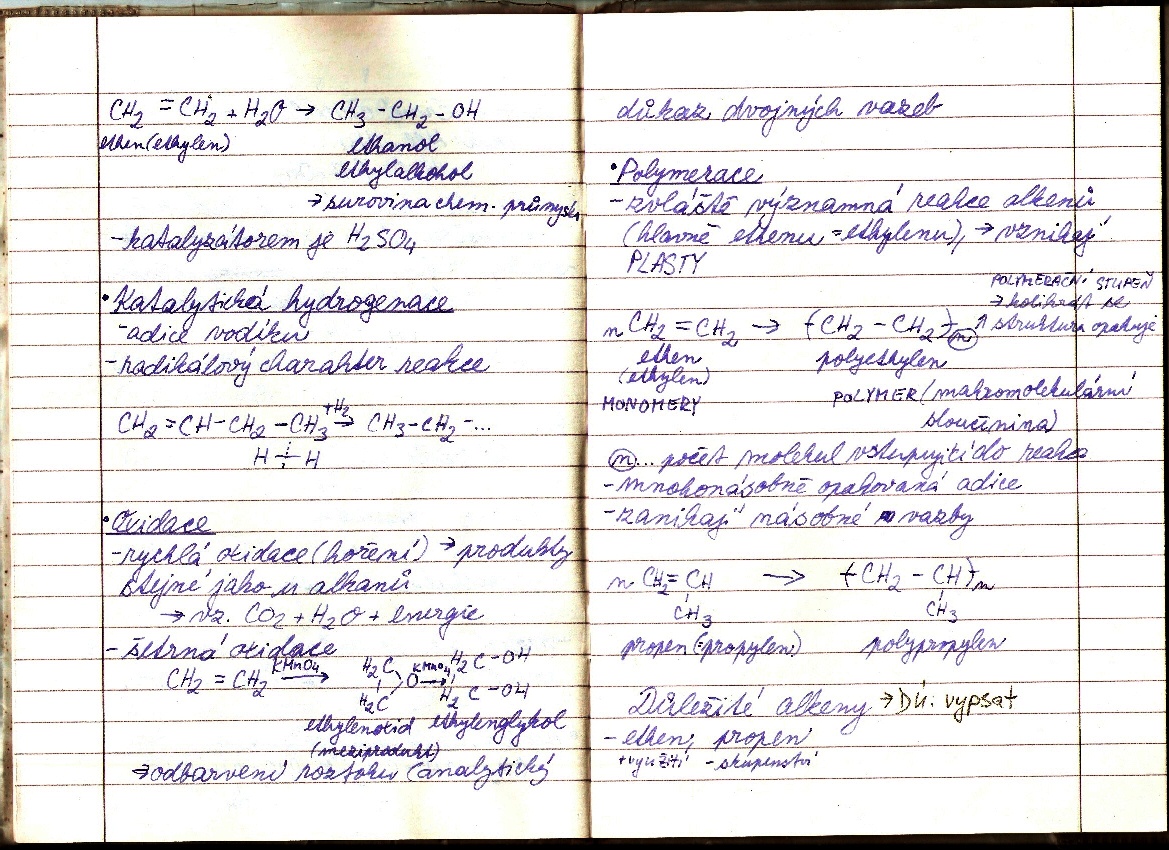 CH₂ = CH₂ + H₂O → CH₃ - CH₂ - OH
ethen (ethylen) ethanol
ethylalkohol
→ surovina chem. průmyslu
- katalyzátorem je H₂SO₄
• Katalytická hydrogenace
- adice vodíku
- radikálový charakter reakce
CH₂ = CH - CH₂ - CH₃ +H₂→ CH₃ - CH₂ - ...
H ┊ H
• Oxidace
- rychlá oxidace (hoření) → produkty
stejné jako u alkanů
→ vz. CO₂ + H₂O + energie
- šetrná oxidace
CH₂ = CH₂ KMnO₄→ H₂C - H₂C > O KMnO₄→ H₂C - OH
H₂C - OH
ethylenoxid ethylenglykol
(meziprodukt)
→ odbarvení roztoku (analytický
důkaz dvojných vazeb
• Polymerace
- zvláště významná reakce alkenů
(hlavně ethenu = ethylenu), → vznikají
PLASTY
POLYMERAČNÍ STUPEŇ
→ kolikrát se
↑ struktura opakuje
n CH₂ = CH₂ → (CH₂ - CH₂)n
ethen polyethylen
(ethylen)
MONOMERY POLYMER (makromolekulární
sloučenina)
n ... počet molekul vstupující do reakce
- mnohonásobně opakovaná adice
- zanikají násobné vazby
n CH₂ = CH → (CH₂ - CH)n
CH₃ CH₃
propen (=propylen) polypropylen
Důležité alkeny → DÚ. vypsat
- ethen, propen
+ využití - skupenství